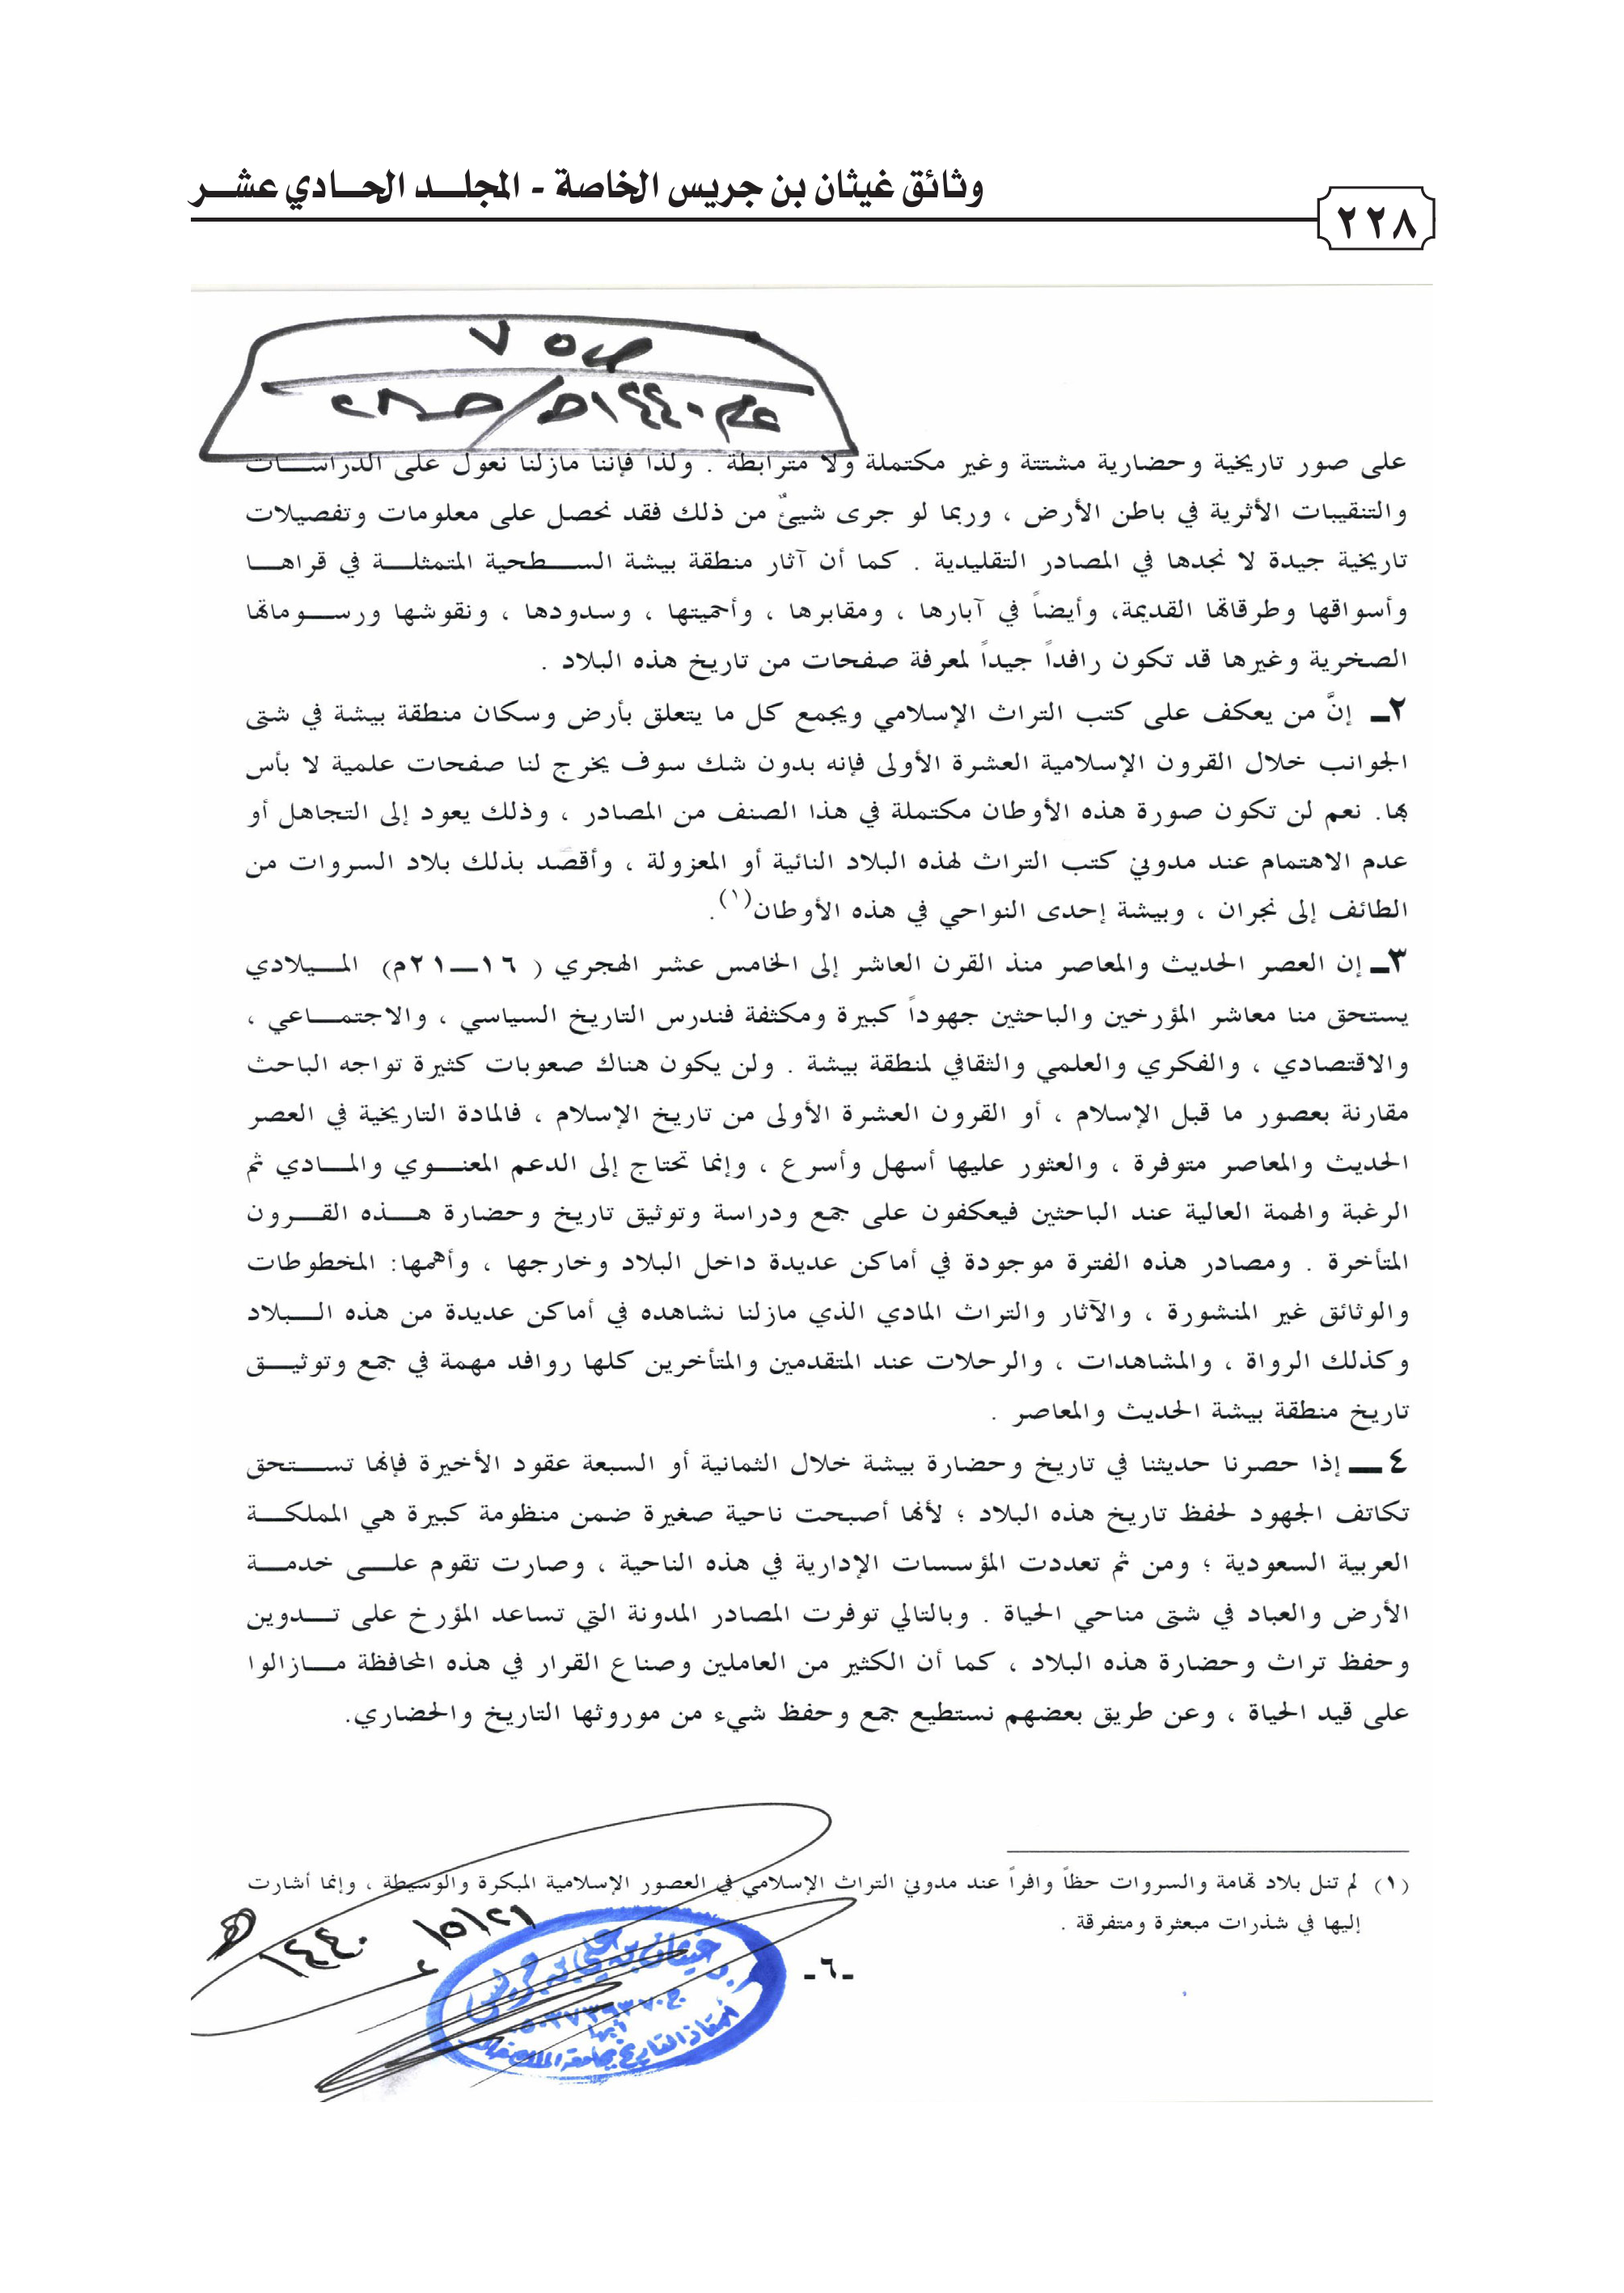 وثائق غيثان بن جريس الخاصة - المجلد الحادي عشر
٢٢٨
على صور تاريخية وحضارية مشتتة وغير مكتملة ولا مترابطة . ولذا فإننا مازلنا نعول على الدراسات
والتنقيبات الأثرية في باطن الأرض ، وربما لو جرى شيئٌ من ذلك فقد نحصل على معلومات وتفصيلات
تاريخية جيدة لا نجدها في المصادر التقليدية . كما أن آثار منطقة بيشة السطحية المتمثلة في قراها
وأسواقها وطرقاتها القديمة، وأيضاً في آبارها ، ومقابرها ، وأحميتها ، وسدودها ، ونقوشها ورسوماتها
الصخرية وغيرها قد تكون رافداً جيداً لمعرفة صفحات من تاريخ هذه البلاد .
٢ـ إنَّ من يعكف على كتب التراث الإسلامي ويجمع كل ما يتعلق بأرض وسكان منطقة بيشة في شتى
الجوانب خلال القرون الإسلامية العشرة الأولى فإنه بدون شك سوف يخرج لنا صفحات علمية لا بأس
بها. نعم لن تكون صورة هذه الأوطان مكتملة في هذا الصنف من المصادر ، وذلك يعود إلى التجاهل أو
عدم الاهتمام عند مدوني كتب التراث لهذه البلاد النائية أو المعزولة ، وأقصد بذلك بلاد السروات من
الطائف إلى نجران ، وبيشة إحدى النواحي في هذه الأوطان(١).
٣ـ إن العصر الحديث والمعاصر منذ القرن العاشر إلى الخامس عشر الهجري ( ١٦ــ٢١م) الميلادي
يستحق منا معاشر المؤرخين والباحثين جهوداً كبيرة ومكثفة فندرس التاريخ السياسي ، والاجتماعي ،
والاقتصادي ، والفكري والعلمي والثقافي لمنطقة بيشة . ولن يكون هناك صعوبات كثيرة تواجه الباحث
مقارنة بعصور ما قبل الإسلام ، أو القرون العشرة الأولى من تاريخ الإسلام ، فالمادة التاريخية في العصر
الحديث والمعاصر متوفرة ، والعثور عليها أسهل وأسرع ، وإنما تحتاج إلى الدعم المعنوي والمادي ثم
الرغبة والهمة العالية عند الباحثين فيعكفون على جمع ودراسة وتوثيق تاريخ وحضارة هذه القرون
المتأخرة . ومصادر هذه الفترة موجودة في أماكن عديدة داخل البلاد وخارجها ، وأهمها: المخطوطات
والوثائق غير المنشورة ، والآثار والتراث المادي الذي مازلنا نشاهده في أماكن عديدة من هذه البلاد
وكذلك الرواة ، والمشاهدات ، والرحلات عند المتقدمين والمتأخرين كلها روافد مهمة في جمع وتوثيق
تاريخ منطقة بيشة الحديث والمعاصر .
٤ ــ إذا حصرنا حديثنا في تاريخ وحضارة بيشة خلال الثمانية أو السبعة عقود الأخيرة فإنها تستحق
تكاتف الجهود لحفظ تاريخ هذه البلاد ؛ لأنها أصبحت ناحية صغيرة ضمن منظومة كبيرة هي المملكة
العربية السعودية ؛ ومن ثم تعددت المؤسسات الإدارية في هذه الناحية ، وصارت تقوم على خدمة
الأرض والعباد في شتى مناحي الحياة . وبالتالي توفرت المصادر المدونة التي تساعد المؤرخ على تدوين
وحفظ تراث وحضارة هذه البلاد ، كما أن الكثير من العاملين وصناع القرار في هذه المحافظة مازالوا
على قيد الحياة ، وعن طريق بعضهم نستطيع جمع وحفظ شيء من موروثها التاريخ والحضاري.
(١) لم تنل بلاد تهامة والسروات حظاً وافراً عند مدوني التراث الإسلامي في العصور الإسلامية المبكرة والوسيطة ، وإنما أشارت
إليها في شذرات مبعثرة ومتفرقة .
ـ٦ـ